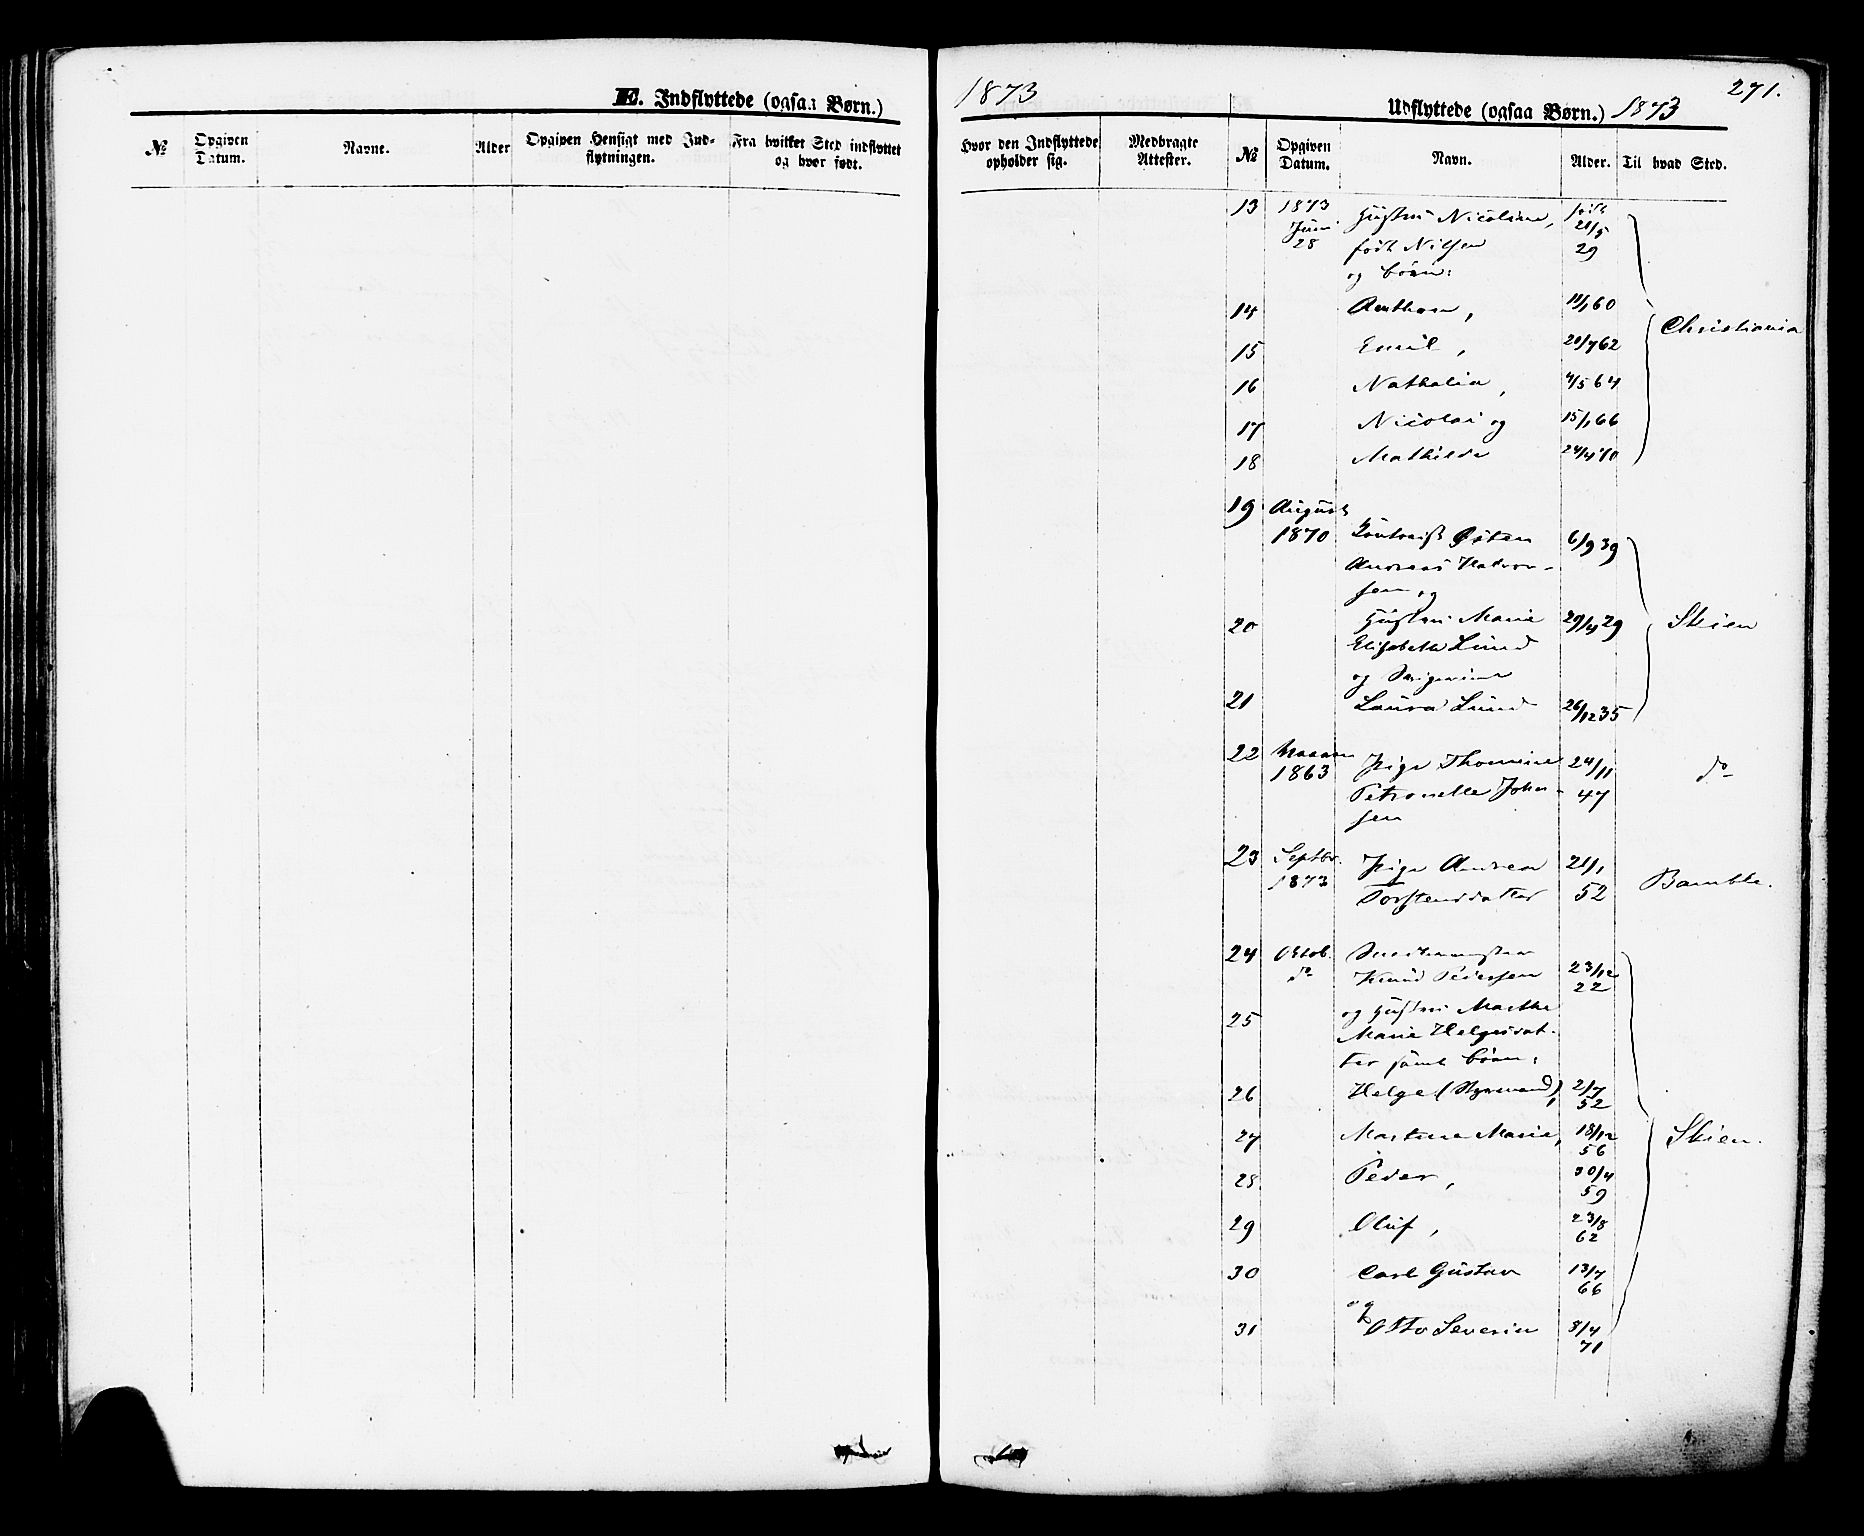 E. Indflyttede (ogsaa Børn.)
№
Opgiven Datum.
Navne.
Alder
Opgiven Hensigt med Ind-
flytningen.
Fra hvilket Sted indflyttet
og hvor født.
1873
271.
Udflyttede (ogsaa Børn.) 1873
Hvor den Indflyttede
opholder sig.
Medbragte
Attester.
№
Opgiven
Datum.
Navn.
Alder.
Til hvad Sted.
13 1873 Hustru Nicoline, født
Juni 28 født Nilsen 21/5 29
og børn:
14 Anthon, 11/1 60 Christiania
15 Emil, 20/7 62
16 Nathalia, 4/5 64
17 Nicolai og 15/1 66
18 Mathilde 24/4 70
19 August
1870 Østen 6/9 39
Andreas Halvor-
sen og
20 Hustru Marie 29/4 29 Skien
Elisabeth Lund
og
21 Laura Lund 26/12 35
22
1863 Pige Thomine 24/11 do
Petronelle John- 47
sen
23 Septbr. Pige Andrea 21/1
1873 Torstensdatter 52 Bamble.
24 Octob.
do Knud Pedersen 23/12 22
25 og Hustru Marthe
Marie Helgesdat-
ter samt børn:
26 Helge (Styrmand), 2/7 52
27 Martine Marie, 18/12 56 Skien.
28 Peder, 30/4 59
29 Oluf, 23/8 62
30 Carl Gustav 13/7 66
og
31 Otto Severin 8/4 71